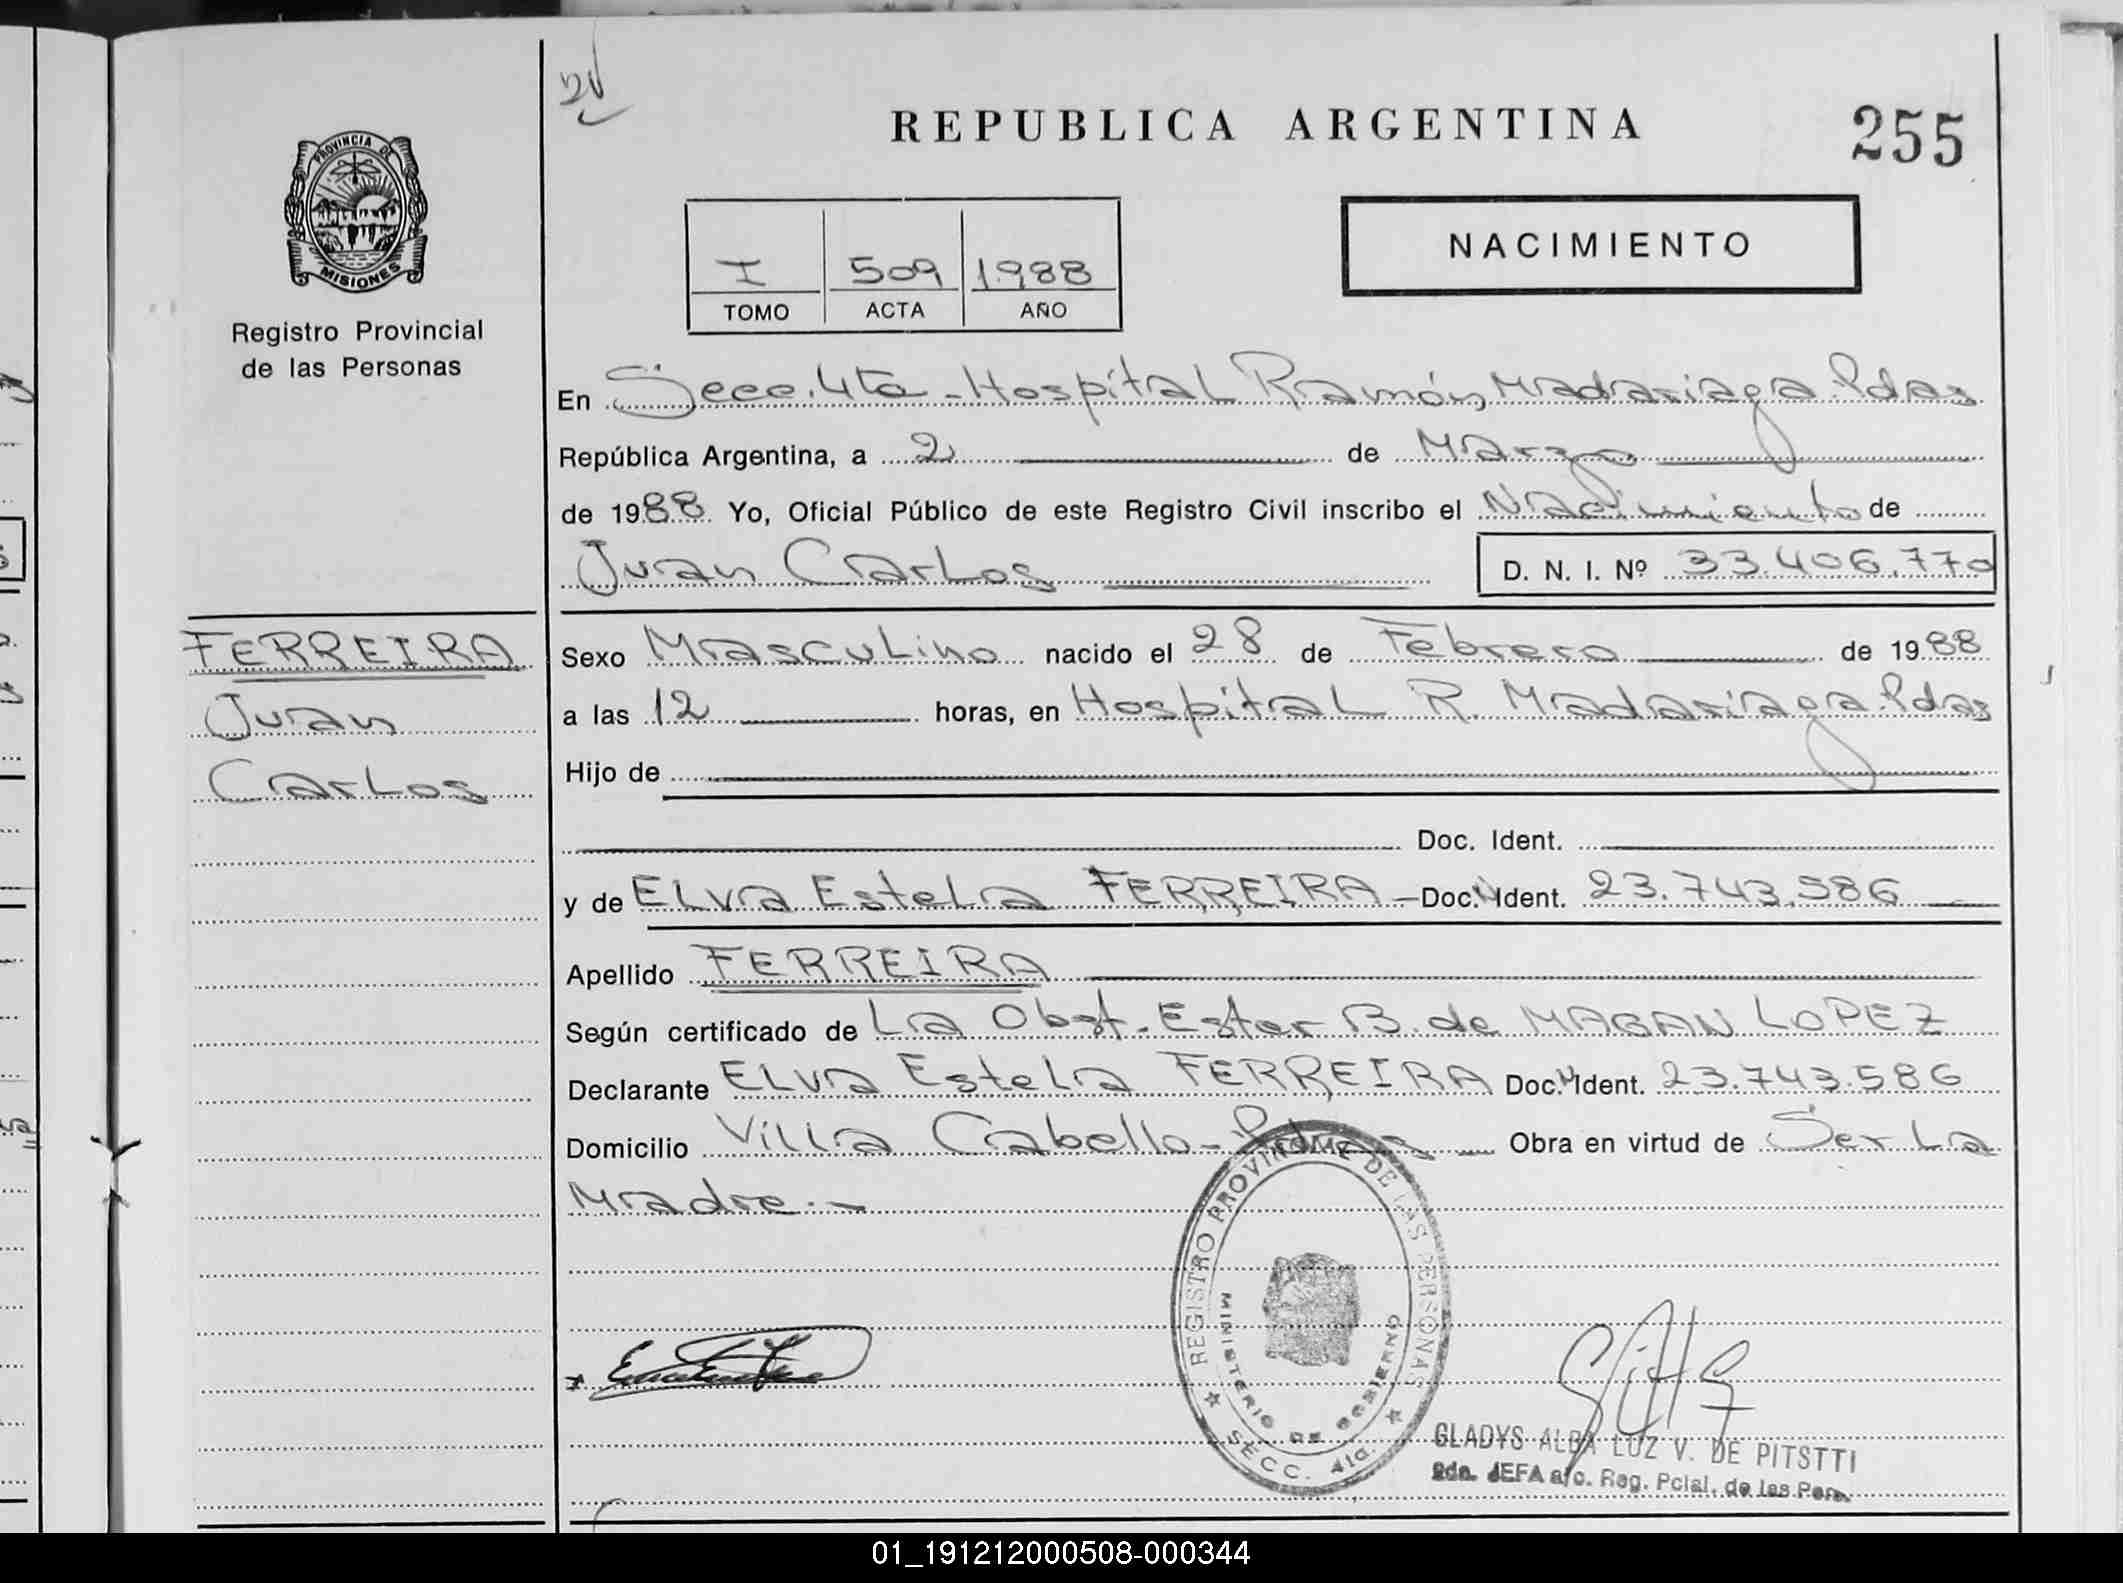 REPUBLICA ARGENTINA
255
PROVINCIA DE
MISIONES
Registro Provincial
de las Personas
NACIMIENTO
I 509 1988
TOMO ACTA AÑO
En Secc. 4ta - Hospital Ramón Madariaga. Pdas
República Argentina, a 2 de Marzo
de 1988 Yo, Oficial Público de este Registro Civil inscribo el Nacimiento de
Juan Carlos D. N. I. Nº 33.406.770
FERREIRA
Juan
Carlos
Sexo Masculino nacido el 28 de Febrero de 1988
a las 12 horas, en Hospital R. Madariaga. Pdas
Hijo de
Doc. Ident.
y de ELva EsteLa FERREIRA - Doc. Ident. 23.743.586
Apellido FERREIRA
Según certificado de La Obst. Ester B. de MAGAN LOPEZ
Declarante ELva EsteLa FERREIRA Doc. Ident. 23.743.586
Domicilio Villa Cabello - Pdas Obra en virtud de Ser La
Madre.-
REGISTRO PROVINCIAL DE LAS PERSONAS
MINISTERIO DE GOBIERNO
SECC. 4ta.
GLADYS ALBA LUZ V. DE PITSTTI
2da. JEFA a/c. Reg. Pcial. de las Pers.
01_191212000508-000344